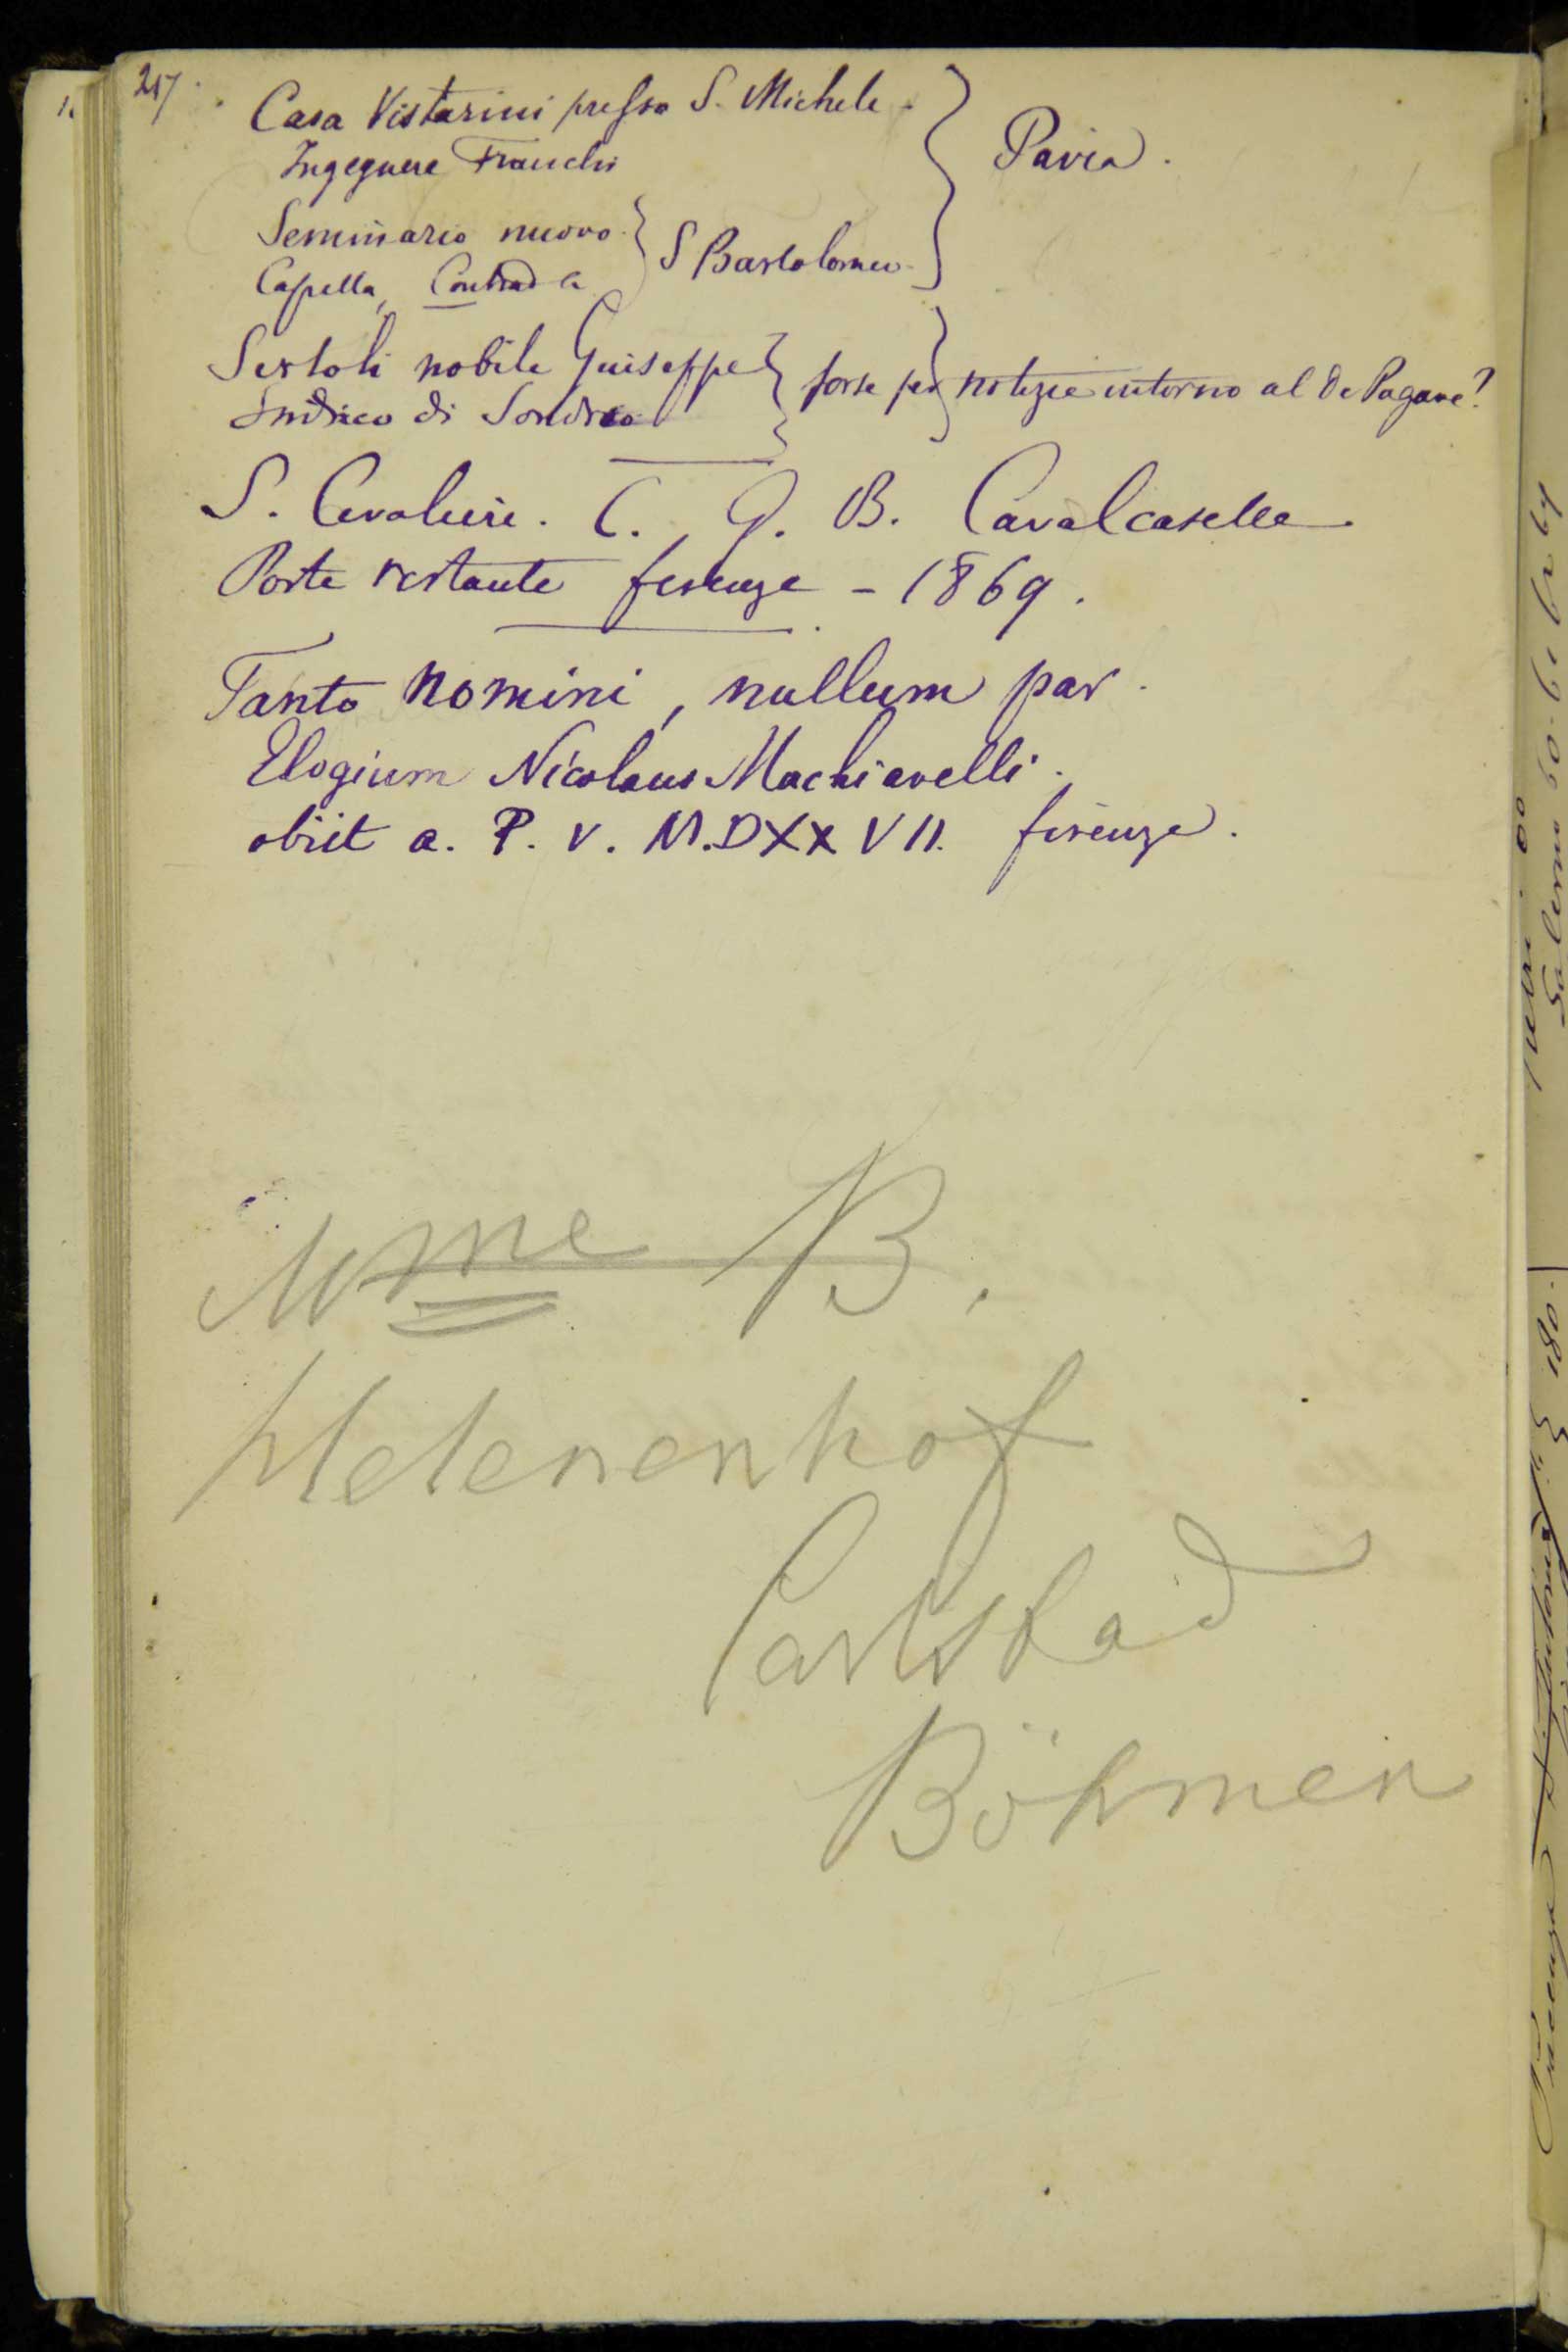 217.
Casa Vistarini presso S. Michele.
Ingegnere Franchi
Pavia.
Seminario nuovo.
Capella, Contrada
S Bartolomeo.
Sertoli nobile Guiseppe
Sindico di Sondrio
forse per notizie intorno al De Pagave?
S. Cavaliere. C. G. B. Cavalcaselle.
Poste restante firenze - 1869.
Tanto nomini, nullum par.
Elogium Nicolaus Machiavelli.
obiit a. P. V. M.DXXVII. firenze.
Mme B.
Helenenhof
Carlsbad
Böhmen